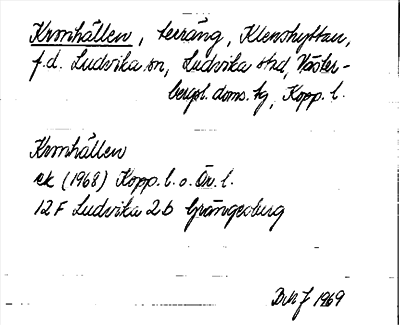 Kronhällen, terräng, Klenshyttan,
f.d. Ludvika sn, Ludvika stad, Väster-
bergsl. doms. tg, Kopp. l.
Kronhällen
ek (1968) Kopp. l. o. Ör. l.
12 F Ludvika 2 b Grängesberg
1969